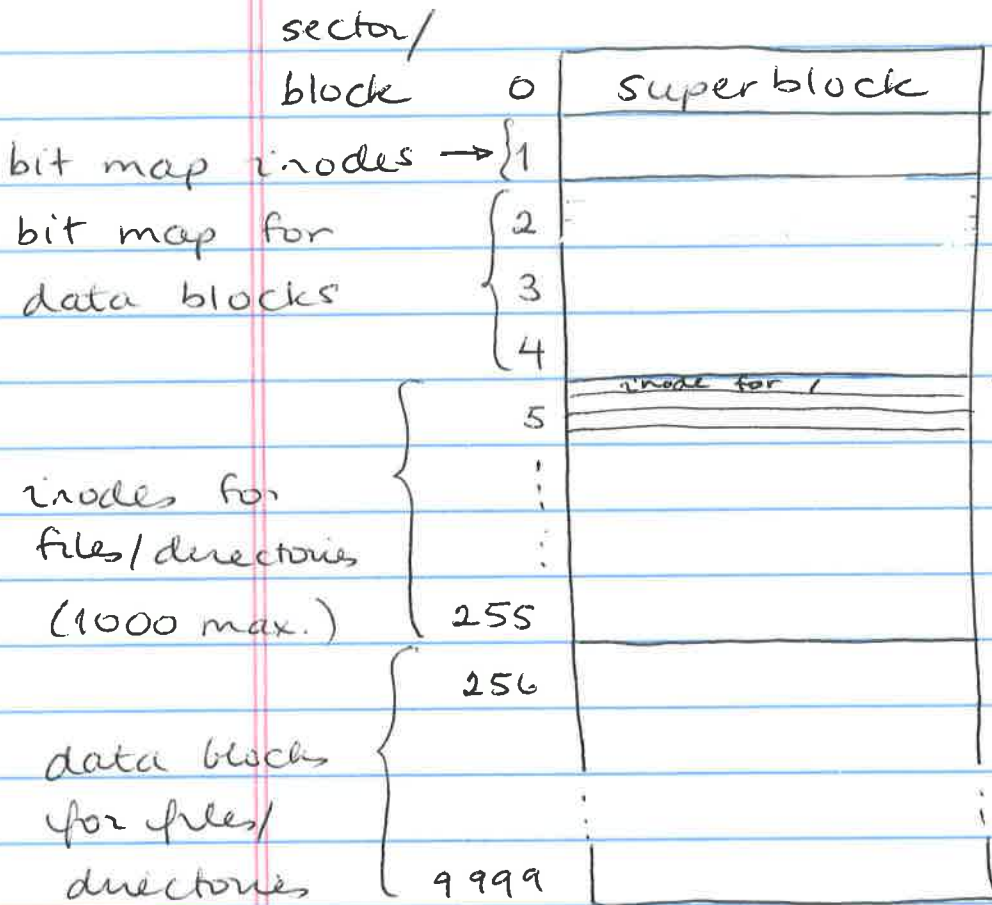 sector/
block 0 superblock
bit map inodes → { 1
bit map for 2
data blocks 3
4
inode for /
5
inodes for
files/directories
(1000 max.) 255
256
data blocks
for files/
directories 9999